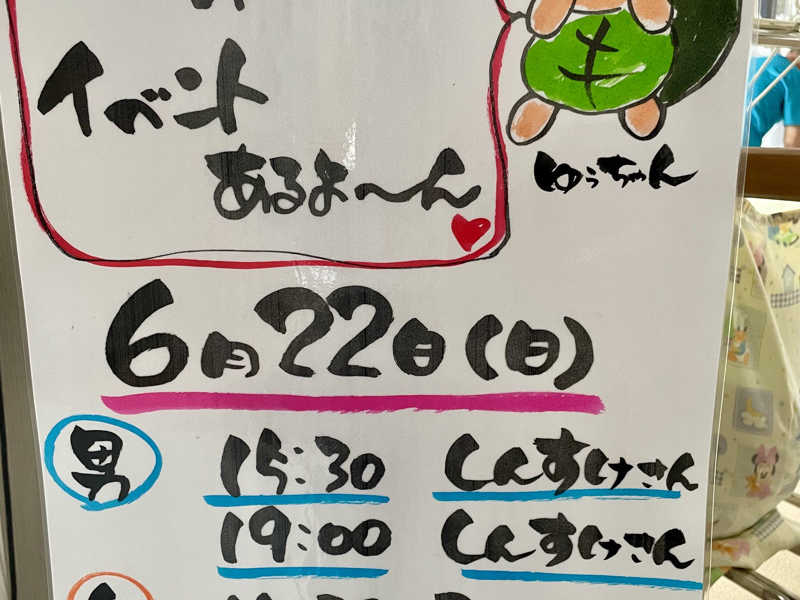 イベント
あるよ〜ん
ゆぅちゃん
6月22日(日)
男
15:30 しんすけさん
19:00 しんすけさん